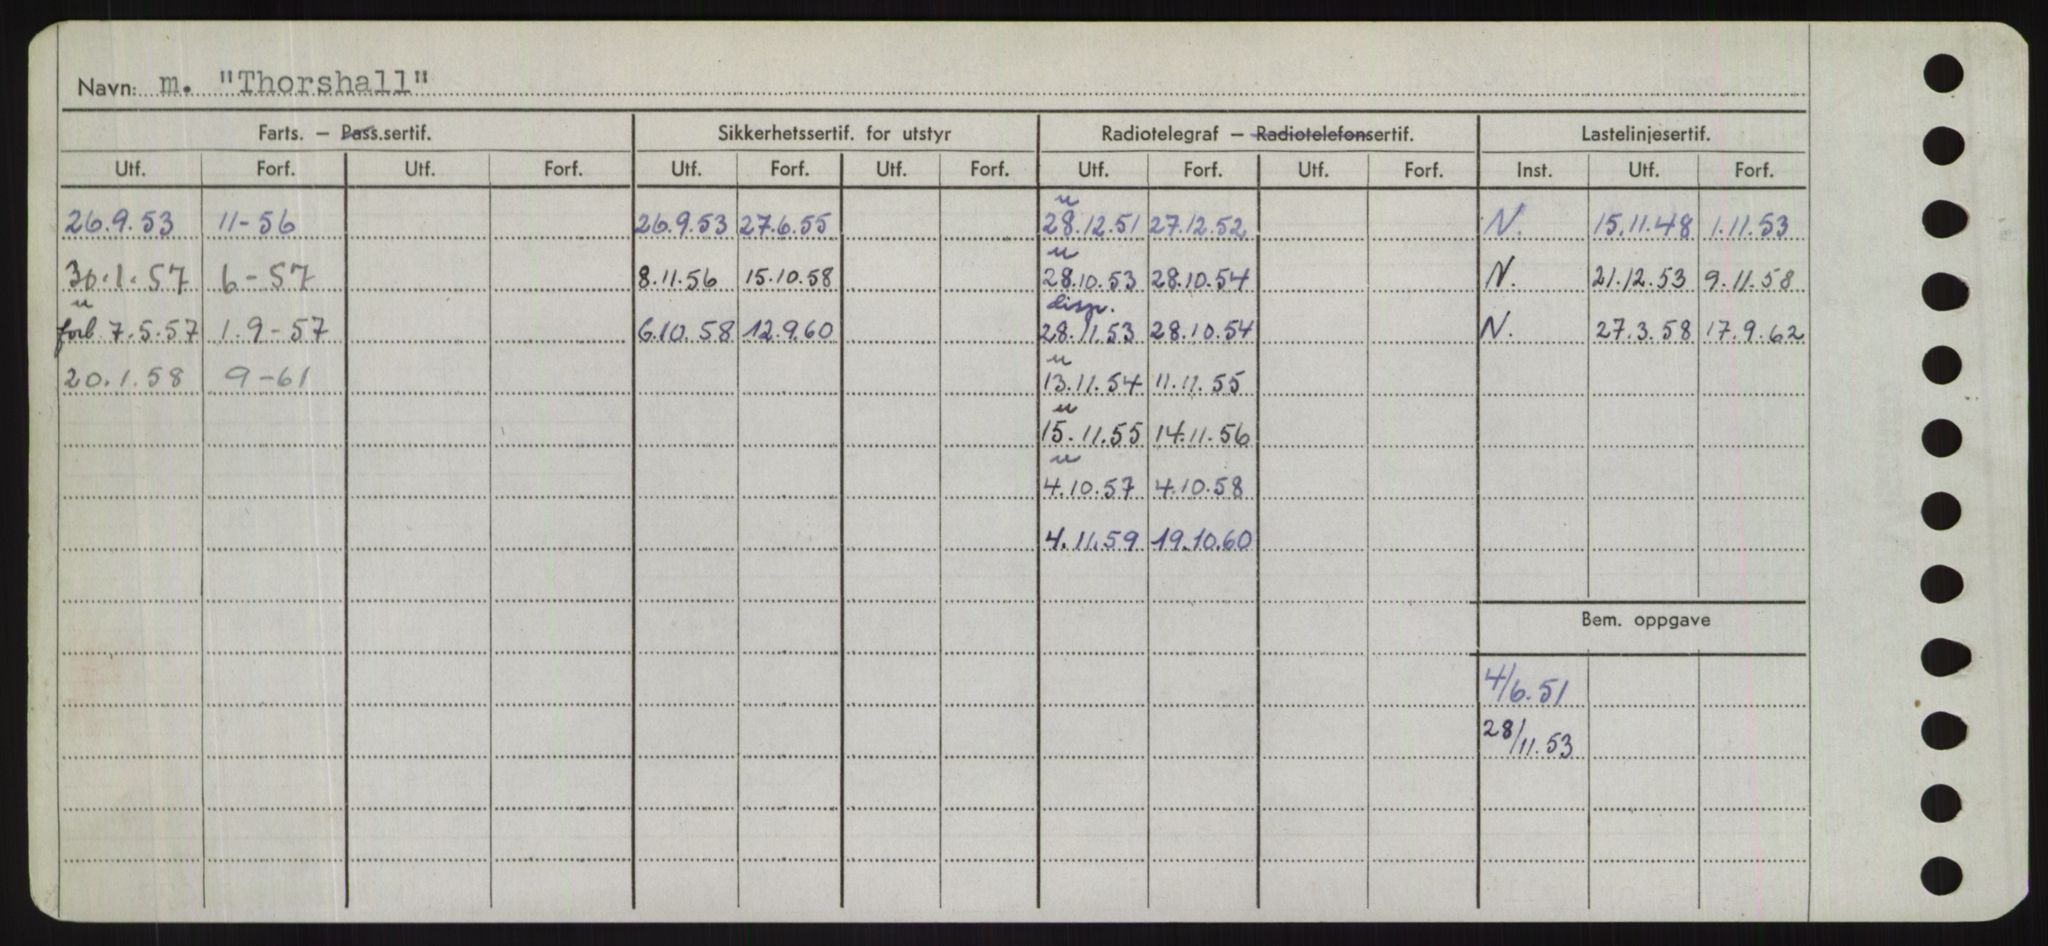 Navn: m. "Thorshall"
Farts. — Pass.sertif. Sikkerhetssertif. for utstyr Radiotelegraf — Radiotelefonsertif. Lastelinjesertif.
Utf. Forf. Utf. Forf. Utf. Forf. Utf. Forf. Utf. Forf. Utf. Forf. Inst. Utf. Forf.
u
26.9.53 11-56 26.9.53 27.6.55 28.12.51 27.12.52 N. 15.11.48 1.11.53
u
30.1.57 6-57 8.11.56 15.10.58 28.10.53 28.10.54 N. 21.12.53 9.11.58
u disp.
forl. 7.5.57 1.9-57 6.10.58 12.9.60 28.11.53 28.10.54 N. 27.3.58 17.9.62
u
20.1.58 9-61 13.11.54 11.11.55
u
15.11.55 14.11.56
u
4.10.57 4.10.58
4.11.59 19.10.60
Bem. oppgave
4/6.51
28/11.53